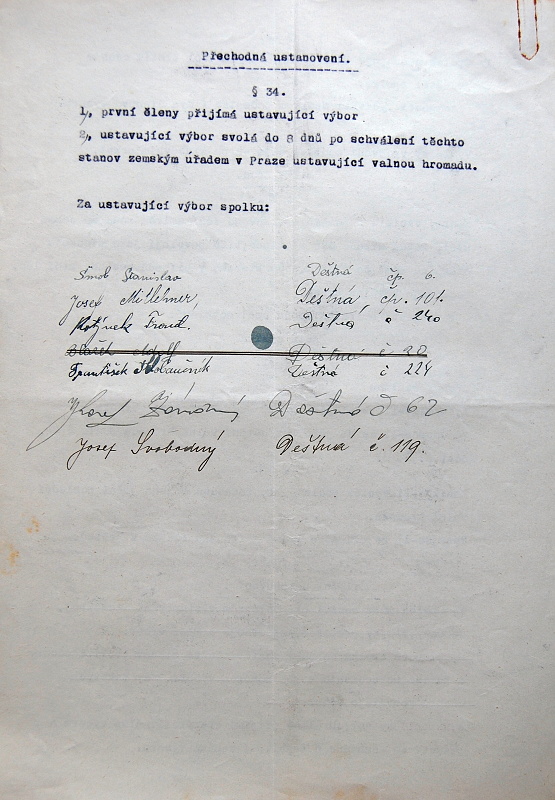 Přechodná ustanovení.
§ 34.
1/, první členy přijímá ustavující výbor
2/, ustavující výbor svolá do 8 dnů po schválení těchto
stanov zemským úřadem v Praze ustavující valnou hromadu.
Za ustavující výbor spolku:
Stanislav Deštná čp. 6.
Josef Deštná, čp. 101.
Deštná č 240
Deštná č. 20
František Deštná č 224
Karel Deštná č 62
Josef Svobodný Deštná č. 119.